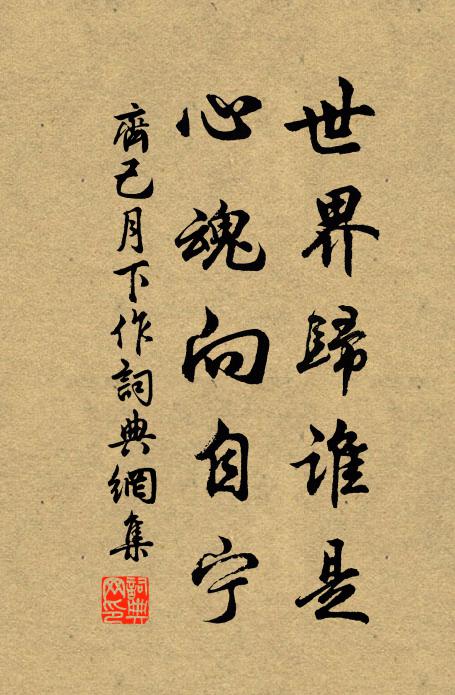 世界歸誰是
心魂向自宁
齊己月下作詞典網集
詞典网印